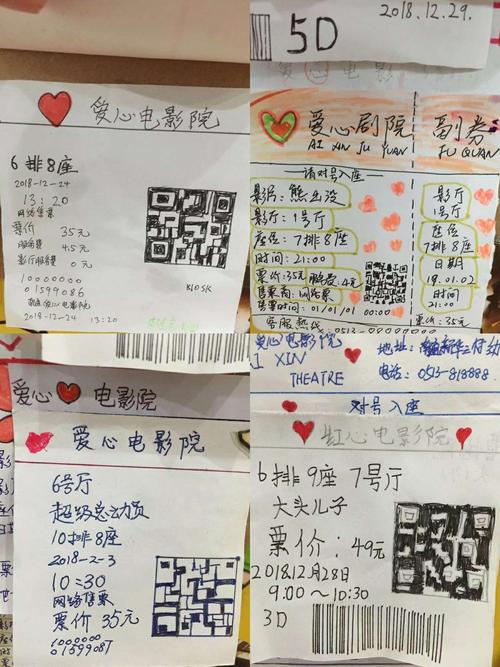 爱心电影院
6排8座
2018-12-24
13:20
网络售票
票价 35元
服务费 4.5元
影厅服务费 0元
10000000
01599086
爱心电影院
2018-12-24 13:20
KIOSK
5D
2018.12.29.
爱心 电影
爱心剧院
AI XIN JU YUAN
请对号入座
影片:熊出没
影厅:1号厅
座位:7排8座
时间:21:00
票价:35元 服务费:4元
售票商:网络票
售票时间:01/01/01
00:00
客服热线:0513-00000000
副券
FU QUAN
影厅
1号厅
座位
7排8座
日期
19.01.02
时间
21:00
票价:35元
爱心 电影院
爱心电影院
6号厅
超级总动员
10排8座
2018-2-3
10:30
网络售票
票价 35元
1000000
01599087
爱心电影院
XIN
THEATRE
地址:
电话:0513-818888
对号入座
红心电影院
6排9座 7号厅
大头儿子
票价:49元
2018.12月28日
9:00~10:30
3D